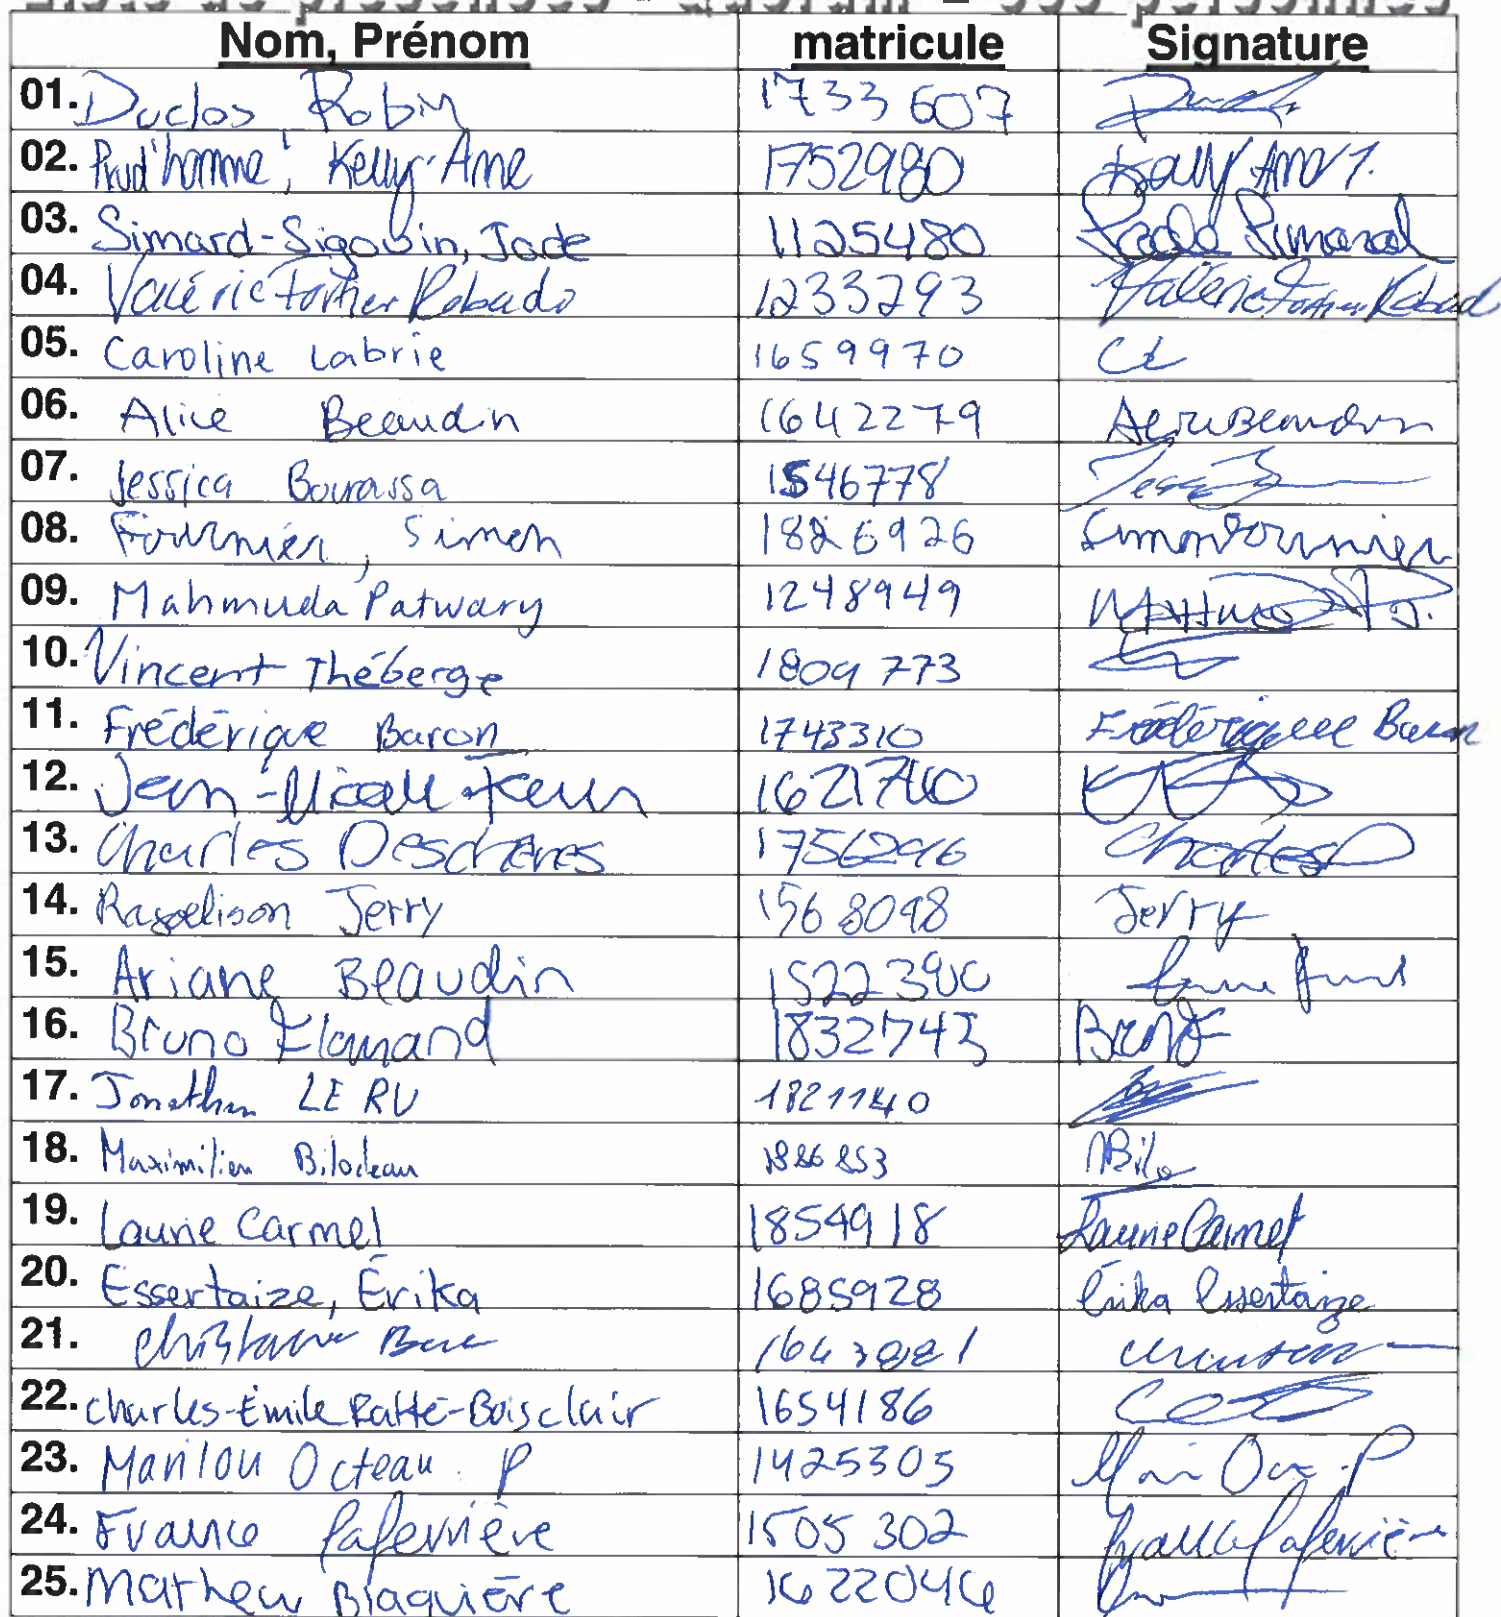 Liste de présences - Quorum -
Nom, Prénom matricule Signature
01. Duclos, Robin 1733 607
02. Prud'homme, Kelly-Ane 1752980
03. Simard-Sigouin, Jade 1125480 Jade Simard
04. Valérie Fortier Robado 1233293 Valérie Fortier Robad
05. Caroline Labrie 1659970 CL
06. Alice Beaudin 1642279 Alice Beaudin
07. Jessica Bourassa 1546778
08. Fournier, Simon 1826926 Simon Fournier
09. Mahmuda Patwary 1248949
10. Vincent Théberge 1809 773
11. Frédérique Baron 1743310 Frédérique Baron
12. Jean-
13. Charles Deschênes 1756296 Charles D
14. Jerry 1568098 Jerry
15. Ariane Beaudin 1522390
16. Bruno Flamand 1832743
17. Jonathan LE RU 1821140
18. Maximilien Bilodeau MBilo
19. Laurie Carmel 1854918 Laurie Carmel
20. Essertaize, Érika 1685928 Érika Essertaize
21.
22. Charles-Émile Ratté-Boisclair 1654186
23. Marilou Octeau P 1425305
24. France Laferrière 1505 302 France Laferrière
25. Mathew Blaquière 1622046